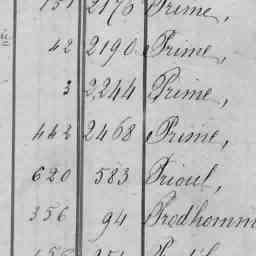 151 2176 Prime,
42 2190 Prime,
3 2244 Prime,
442 2468 Prime,
620 583 Prioul,
356 94 Prodhomm